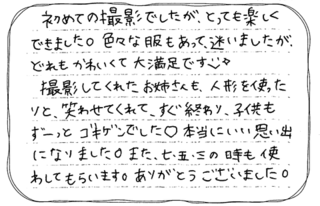 初めての撮影でしたが、とっても楽しく
できました。色々な服もあって、迷いましたが、
どれもかわいくて大満足です
撮影してくれたお姉さんも、人形を使った
りと、笑わせてくれて、すぐ終わり、子供も
ずーっとゴキゲンでした♡本当にいい思い出
になりました。また、七・五・三の時も使
わしてもらいます。ありがとうございました。